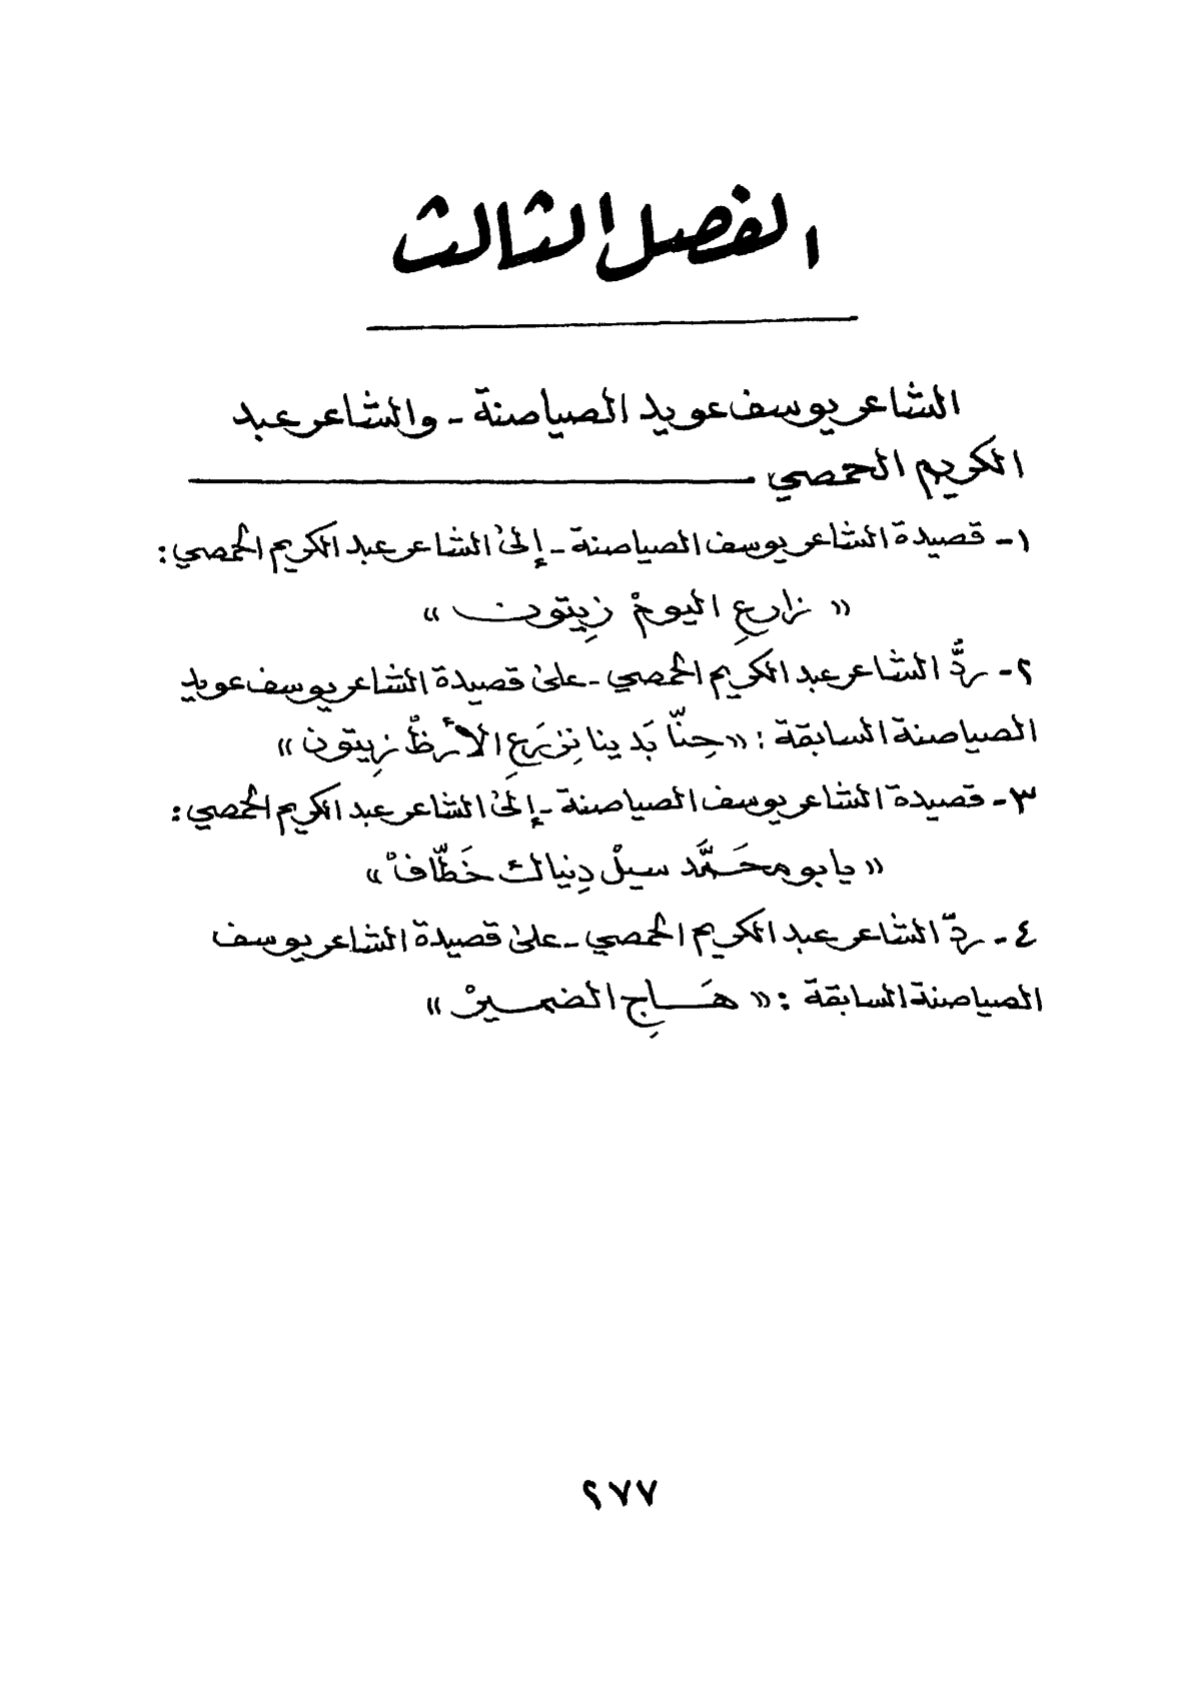 الفصل الثالث
الشاعر يوسف عويد الصياصنة - والشاعر عبد
الكريم الحمصي
١- قصيدة الشاعر يوسف الصياصنة - إلىٰ الشاعر عبد الكريم الحمصي:
« زارعِ اليومْ زِيتون »
٢- ردُّ الشاعر عبد الكريم الحمصي - علىٰ قصيدة الشاعر يوسف عويد
الصياصنة السابقة: «حِنّا بَدينا نِزرَعِ الأرظْ زِيتونْ»
٣- قصيدة الشاعر يوسف الصياصنة - إلىٰ الشاعر عبد الكريم الحمصي:
« يا بو محَمَّد سيلْ دِنياك خَطّافْ»
٤- ردّ الشاعر عبد الكريم الحمصي - علىٰ قصيدة الشاعر يوسف
الصياصنة السابقة: « هَـاجِ الضميرْ»
٢٧٧